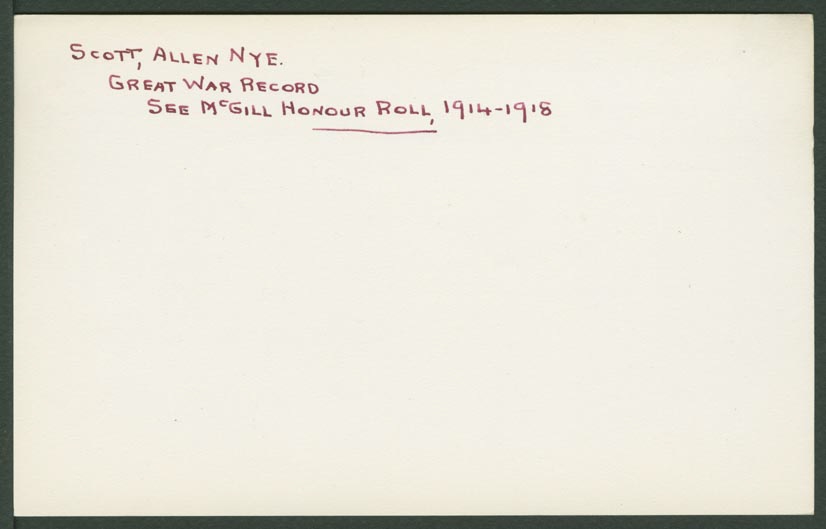 SCOTT, ALLEN NYE.
GREAT WAR RECORD
SEE MCGILL HONOUR ROLL, 1914-1918